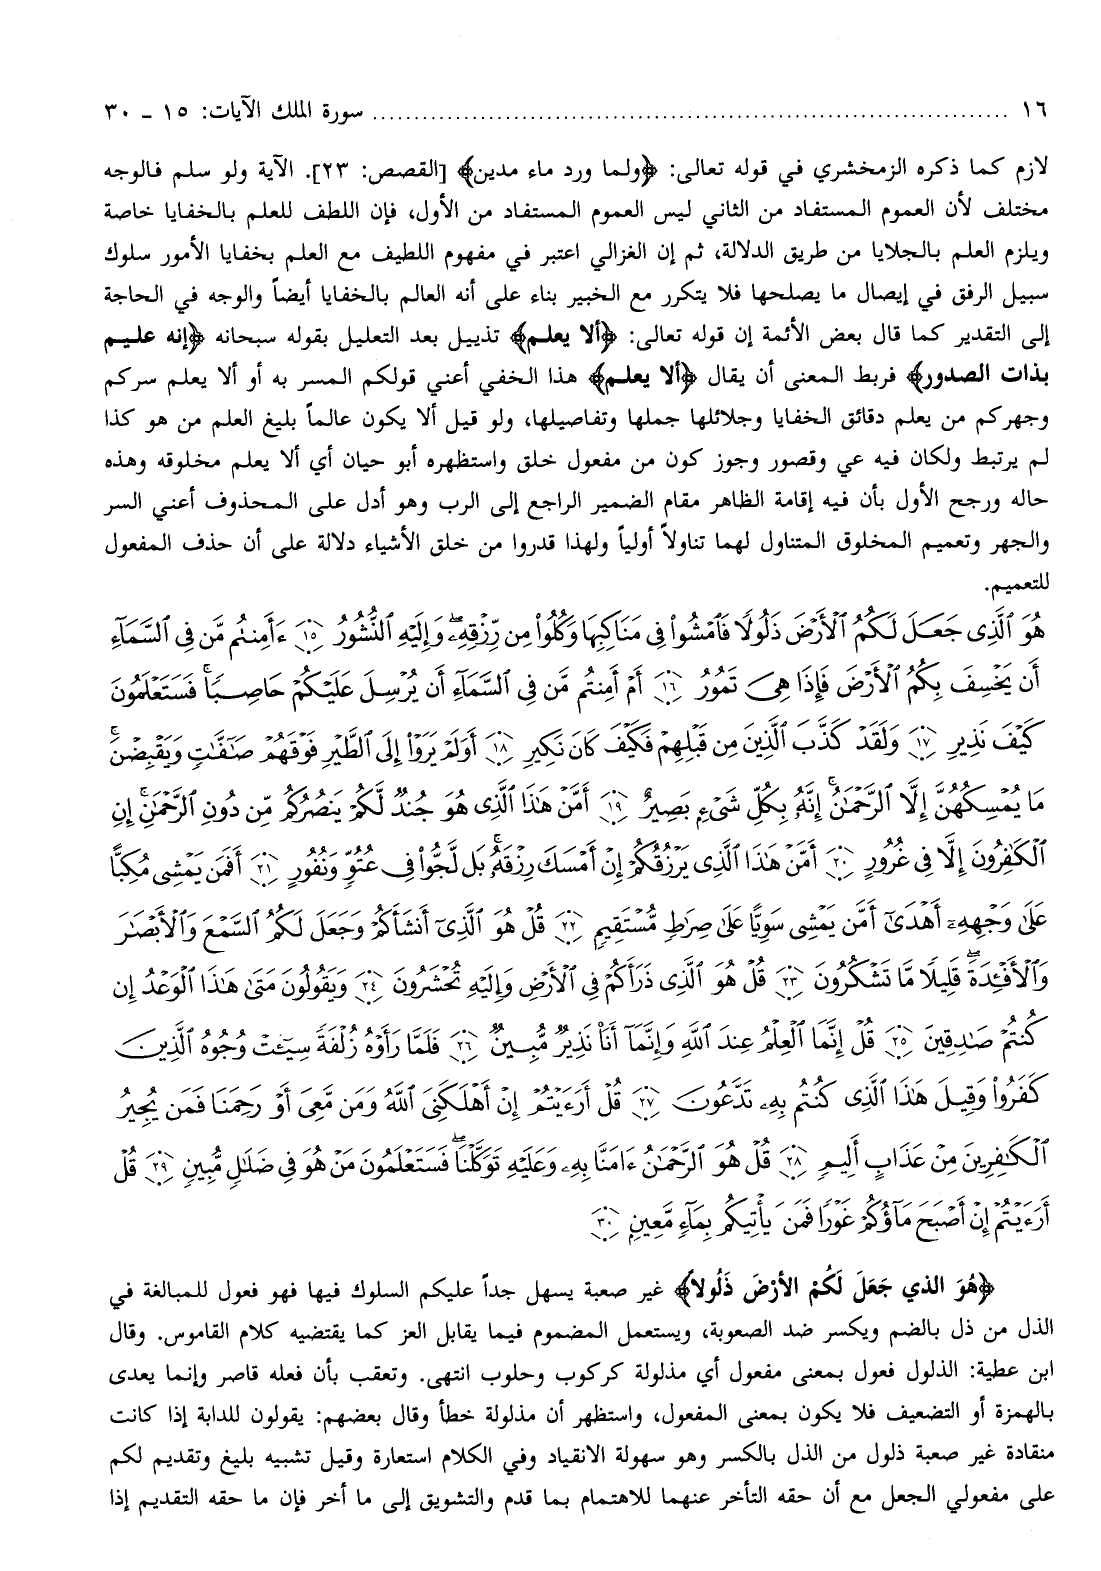 ١٦ ........................................................................ سورة الملك الآيات: ١٥ ـ ٣٠
لازم كما ذكره الزمخشري في قوله تعالى: ﴿ولما ورد ماء مدين﴾ [القصص: ٢٣]. الآية ولو سلم فالوجه
مختلف لأن العموم المستفاد من الثاني ليس العموم المستفاد من الأول، فإن اللطف للعلم بالخفايا خاصة
ويلزم العلم بالجلايا من طريق الدلالة، ثم إن الغزالي اعتبر في مفهوم اللطيف مع العلم بخفايا الأمور سلوك
سبيل الرفق في إيصال ما يصلحها فلا يتكرر مع الخبير بناء على أنه العالم بالخفايا أيضاً والوجه في الحاجة
إلى التقدير كما قال بعض الأئمة إن قوله تعالى: ﴿ألا يعلم﴾ تذييل بعد التعليل بقوله سبحانه ﴿إنه عليم
بذات الصدور﴾ فربط المعنى أن يقال ﴿ألا يعلم﴾ هذا الخفي أعني قولكم المسر به أو ألا يعلم سركم
وجهركم من يعلم دقائق الخفايا وجلائلها جملها وتفاصيلها، ولو قيل ألا يكون عالماً بليغ العلم من هو كذا
لم يرتبط ولكان فيه عي وقصور وجوز كون من مفعول خلق واستظهره أبو حيان أي ألا يعلم مخلوقه وهذه
حاله ورجح الأول بأن فيه إقامة الظاهر مقام الضمير الراجع إلى الرب وهو أدل على المحذوف أعني السر
والجهر وتعميم المخلوق المتناول لهما تناولاً أولياً ولهذا قدروا من خلق الأشياء دلالة على أن حذف المفعول
للتعميم.
هُوَ ٱلَّذِى جَعَلَ لَكُمُ ٱلْأَرْضَ ذَلُولًا فَٱمْشُوا۟ فِى مَنَاكِبِهَا وَكُلُوا۟ مِن رِّزْقِهِۦ ۖ وَإِلَيْهِ ٱلنُّشُورُ ١٥ ءَأَمِنتُم مَّن فِى ٱلسَّمَآءِ
أَن يَخْسِفَ بِكُمُ ٱلْأَرْضَ فَإِذَا هِىَ تَمُورُ ١٦ أَمْ أَمِنتُم مَّن فِى ٱلسَّمَآءِ أَن يُرْسِلَ عَلَيْكُمْ حَاصِبًا ۖ فَسَتَعْلَمُونَ
كَيْفَ نَذِيرِ ١٧ وَلَقَدْ كَذَّبَ ٱلَّذِينَ مِن قَبْلِهِمْ فَكَيْفَ كَانَ نَكِيرِ ١٨ أَوَلَمْ يَرَوْا۟ إِلَى ٱلطَّيْرِ فَوْقَهُمْ صَٰٓفَّٰتٍ وَيَقْبِضْنَ ۚ
مَا يُمْسِكُهُنَّ إِلَّا ٱلرَّحْمَٰنُ ۚ إِنَّهُۥ بِكُلِّ شَىْءٍۭ بَصِيرٌ ١٩ أَمَّنْ هَٰذَا ٱلَّذِى هُوَ جُندٌ لَّكُمْ يَنصُرُكُم مِّن دُونِ ٱلرَّحْمَٰنِ ۚ إِنِ
ٱلْكَٰفِرُونَ إِلَّا فِى غُرُورٍ ٢٠ أَمَّنْ هَٰذَا ٱلَّذِى يَرْزُقُكُمْ إِنْ أَمْسَكَ رِزْقَهُۥ ۚ بَل لَّجُّوا۟ فِى عُتُوٍّ وَنُفُورٍ ٢١ أَفَمَن يَمْشِى مُكِبًّا
عَلَىٰ وَجْهِهِۦٓ أَهْدَىٰٓ أَمَّن يَمْشِى سَوِيًّا عَلَىٰ صِرَٰطٍ مُّسْتَقِيمٍ ٢٢ قُلْ هُوَ ٱلَّذِىٓ أَنشَأَكُمْ وَجَعَلَ لَكُمُ ٱلسَّمْعَ وَٱلْأَبْصَٰرَ
وَٱلْأَفْـِٔدَةَ ۖ قَلِيلًا مَّا تَشْكُرُونَ ٢٣ قُلْ هُوَ ٱلَّذِى ذَرَأَكُمْ فِى ٱلْأَرْضِ وَإِلَيْهِ تُحْشَرُونَ ٢٤ وَيَقُولُونَ مَتَىٰ هَٰذَا ٱلْوَعْدُ إِن
كُنتُمْ صَٰدِقِينَ ٢٥ قُلْ إِنَّمَا ٱلْعِلْمُ عِندَ ٱللَّهِ وَإِنَّمَآ أَنَا۠ نَذِيرٌ مُّبِينٌ ٢٦ فَلَمَّا رَأَوْهُ زُلْفَةً سِيٓـَٔتْ وُجُوهُ ٱلَّذِينَ
كَفَرُوا۟ وَقِيلَ هَٰذَا ٱلَّذِى كُنتُم بِهِۦ تَدَّعُونَ ٢٧ قُلْ أَرَءَيْتُمْ إِنْ أَهْلَكَنِىَ ٱللَّهُ وَمَن مَّعِىَ أَوْ رَحِمَنَا فَمَن يُجِيرُ
ٱلْكَٰفِرِينَ مِنْ عَذَابٍ أَلِيمٍ ٢٨ قُلْ هُوَ ٱلرَّحْمَٰنُ ءَامَنَّا بِهِۦ وَعَلَيْهِ تَوَكَّلْنَا ۖ فَسَتَعْلَمُونَ مَنْ هُوَ فِى ضَلَٰلٍ مُّبِينٍ ٢٩ قُلْ
أَرَءَيْتُمْ إِنْ أَصْبَحَ مَآؤُكُمْ غَوْرًا فَمَن يَأْتِيكُم بِمَآءٍ مَّعِينٍۭ ٣٠
﴿هُوَ الذي جَعَلَ لَكُمْ الأرْضَ ذَلُولاً﴾ غير صعبة يسهل جداً عليكم السلوك فيها فهو فعول للمبالغة في
الذل من ذل بالضم ويكسر ضد الصعوبة، ويستعمل المضموم فيما يقابل العز كما يقتضيه كلام القاموس. وقال
ابن عطية: الذلول فعول بمعنى مفعول أي مذلولة كركوب وحلوب انتهى. وتعقب بأن فعله قاصر وإنما يعدى
بالهمزة أو التضعيف فلا يكون بمعنى المفعول، واستظهر أن مذلولة خطأ وقال بعضهم: يقولون للدابة إذا كانت
منقادة غير صعبة ذلول من الذل بالكسر وهو سهولة الانقياد وفي الكلام استعارة وقيل تشبيه بليغ وتقديم لكم
على مفعولي الجعل مع أن حقه التأخر عنهما للاهتمام بما قدم والتشويق إلى ما أخر فإن ما حقه التقديم إذا